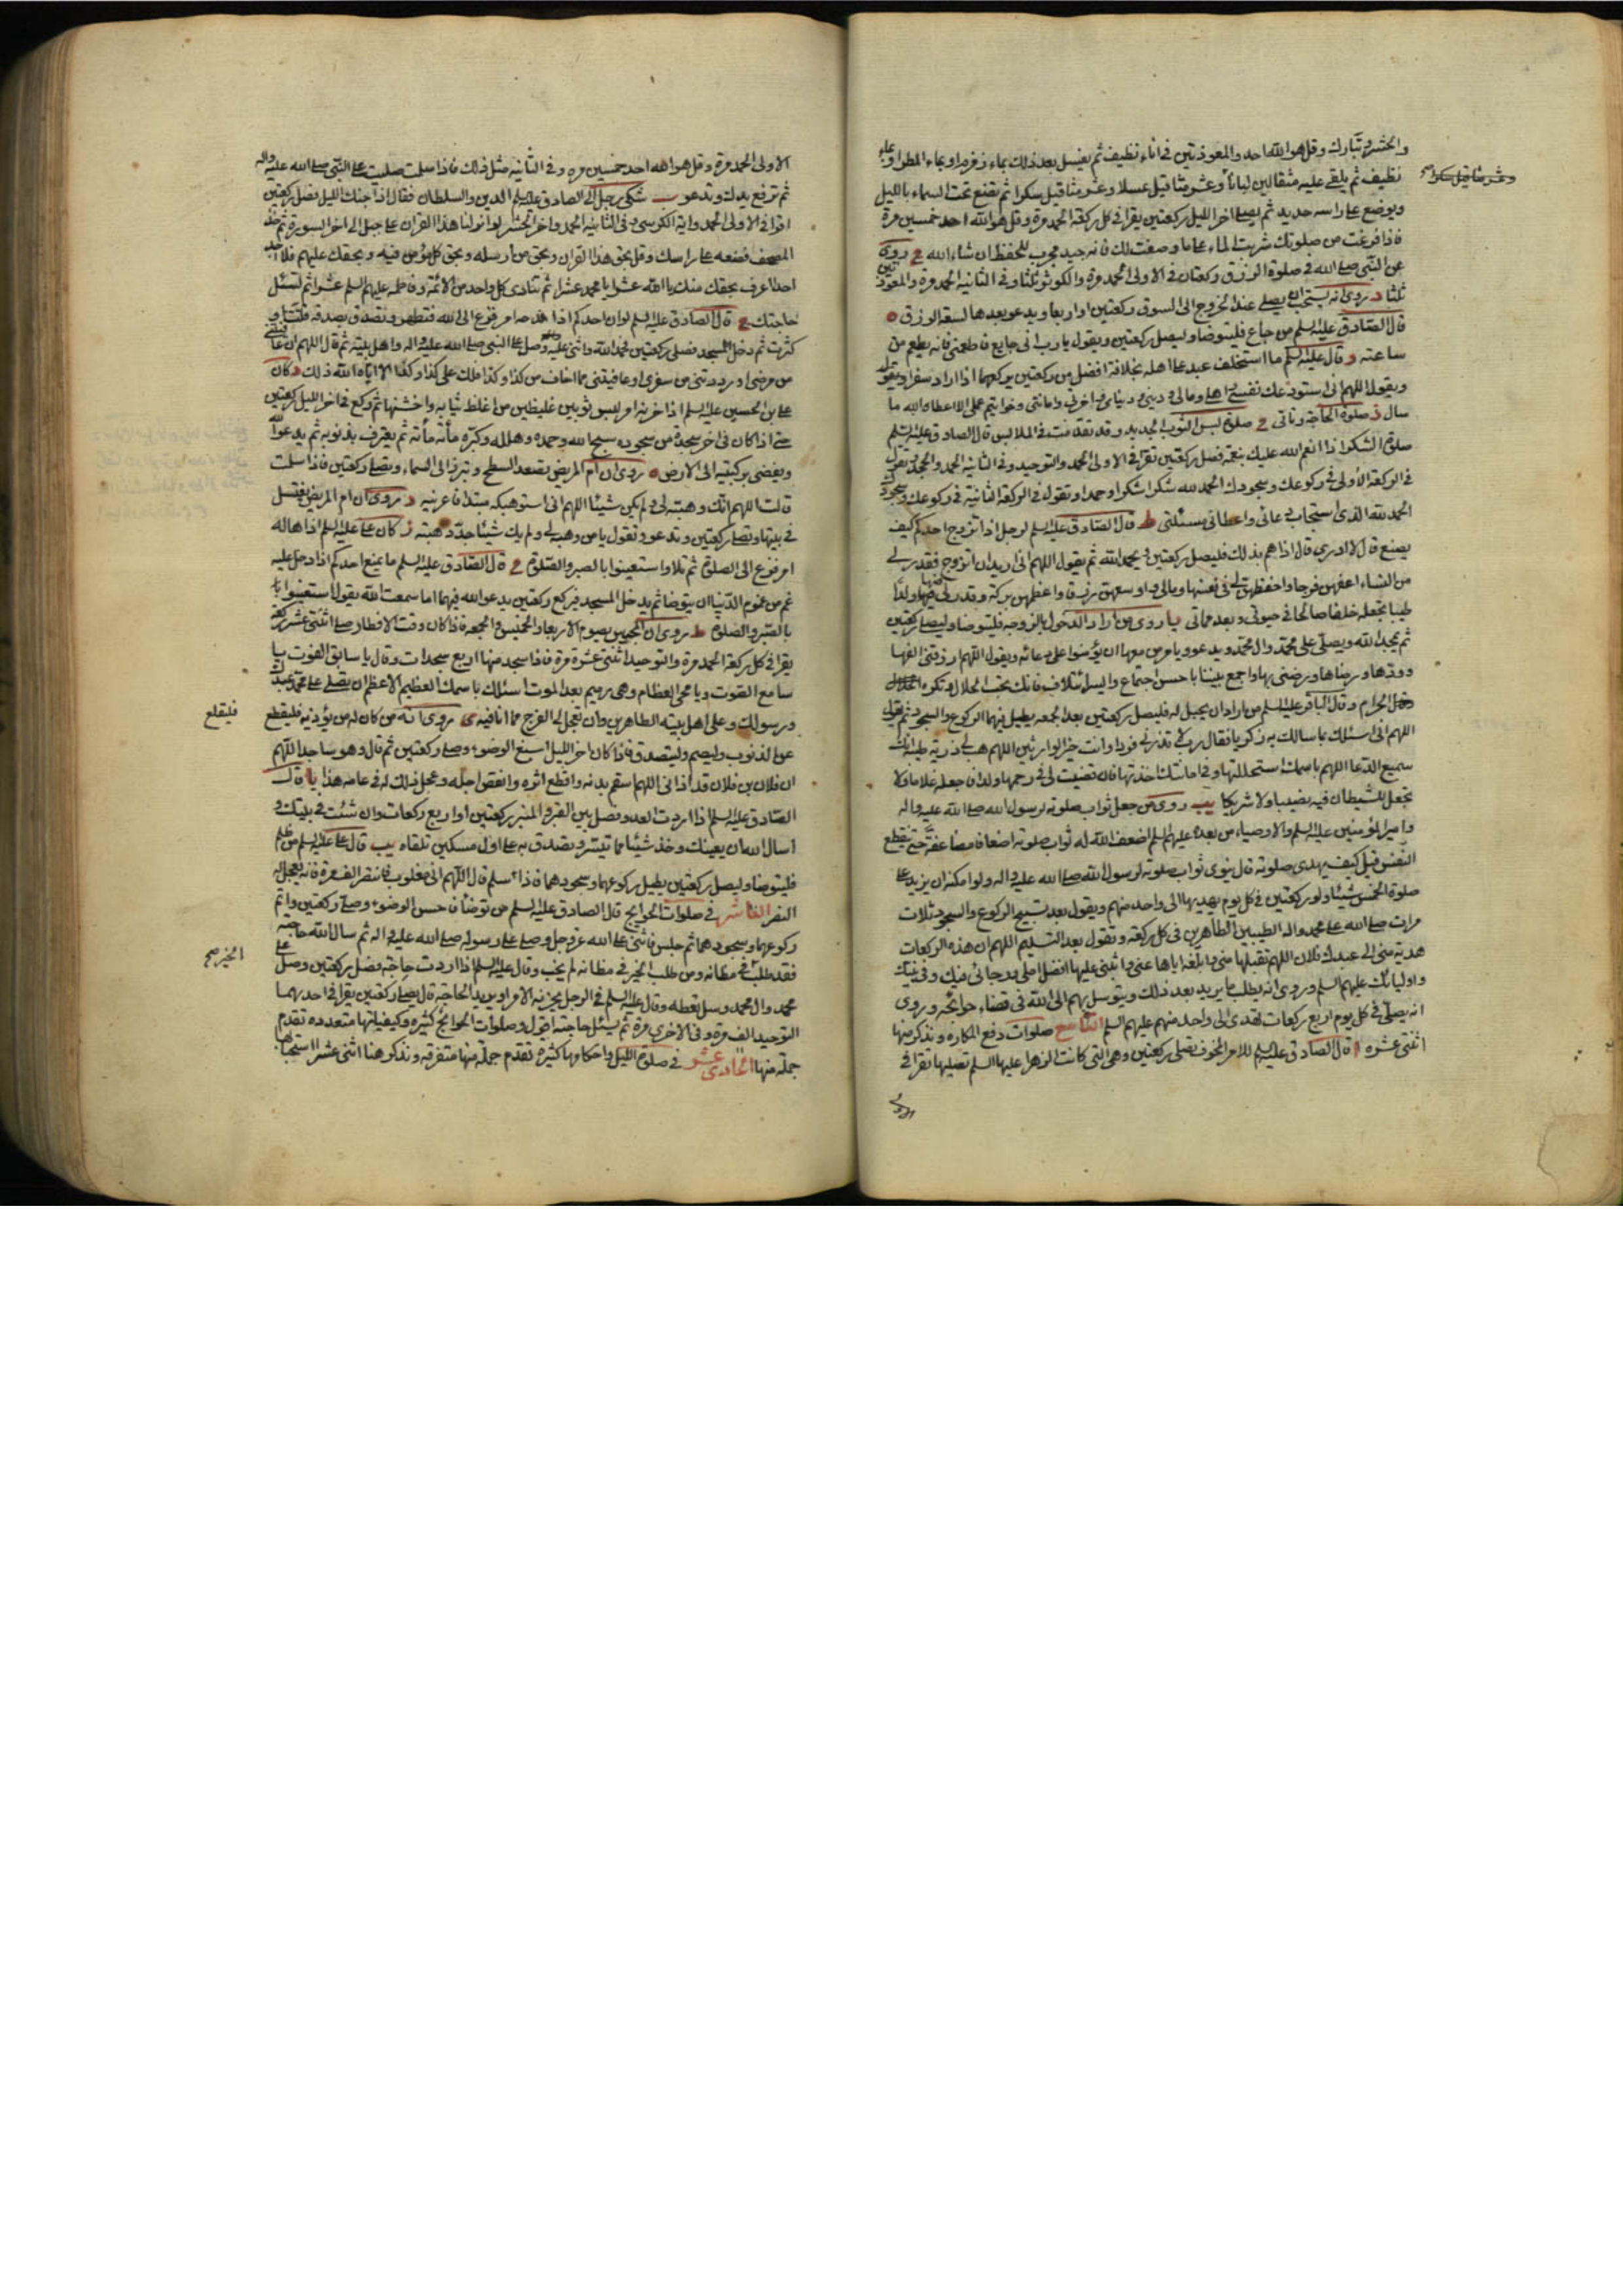 والحشر وتبارك وقل هو الله احد والمعوذتين في اناء نظيف ثم يغسل بعد ذلك بماء زمزم او بماء المطر او بماء
نظيف ثم يلقى عليه مثقالين لبانا وعشر مثاقيل عسلا وعشر مثاقيل سكرا ثم يضع تحت السماء بالليل
وعشر مثاقيل سكرا صح
ويوضع على راسه حديد ثم يصلى اخر الليل ركعتين يقرا في كل ركعة الحمد مرة وقل هو الله احد خمسين مرة
فاذا فرغت من صلوتك شربت الماء على ما وصفت لك فانه جيد مجرب للحفظ ان شاء الله ج روى
عن النبى صلى الله في صلوة الرزق ركعتان في الاولى الحمد مرة والكوثر ثلثا وفى الثانية الحمد مرة والمعوذتين
ثلثا د روى انه يستحب ان يصلى عند الخروج الى السوق ركعتين او اربعا ويدعو بعدها لسعة الرزق ه
قال الصادق عليه السلم من جاع فليتوضا وليصل ركعتين ويقول يا رب انى جايع فاطعمنى فانه يطعم من
ساعته و قال عليه السلم ما استخلف عبد على اهله بخلافة افضل من ركعتين يركعهما اذا اراد سفرا ويقول
ويقول اللهم انى استودعك نفسى واهلى ومالى ودينى ودنياى واخرتى وامانتى وخواتيم عملى الا اعطاه الله ما
سال ز صلوة الحاجة وتاتى ح صلوة لبس الثوب الجديد وقد تقدمت في الملابس قال الصادق عليه السلم
صلوة الشكر اذا انعم الله عليك بنعمة فصل ركعتين تقرا في الاولى الحمد والتوحيد وفى الثانية الحمد والجحد وتقول
في الركعة الاولى في ركوعك وسجودك الحمد لله شكرا شكرا وحمدا وتقول في الركعة الثانية في ركوعك وسجودك
الحمد لله الذى استجاب دعائى واعطانى مسئلتى ط قال الصادق عليه السلم لرجل اذا تزوج احدكم كيف
يصنع قال لا ادرى قال اذا هم بذلك فليصل ركعتين ويحمد الله ثم يقول اللهم انى اريد ان اتزوج فقدر لى
من النساء اعفهن فرجا واحفظهن لى في نفسها ومالى واوسعهن رزقا واعظمهن بركة وقدر لى منها ولدا
طيبا تجعله خلفا صالحا في حيوتى وبعد مماتى يا روى من اراد الدخول بالزوجة فليتوضا وليصل ركعتين
ثم يمجد الله ويصلى على محمد وال محمد ويدعو ويامر من معها ان يؤمنوا على دعائه ويقول اللهم ارزقنى الفها
وودها ورضاها ورضنى بها واجمع بيننا باحسن اجتماع وايسر ائتلاف فانك تحب الحلال وتكره
الحرام وقال الباقر عليه السلم من اراد ان يحبل له فليصل ركعتين بعد الجمعة يطيل فيهما الركوع والسجود ثم يقول
اللهم انى اسئلك بما سالك به زكريا فقال رب لا تذرنى فردا وانت خير الوارثين اللهم هب لى ذرية طيبة انك
سميع الدعا اللهم باسمك استحللتها وفى امانتك اخذتها فان قضيت لى في رحمها ولدا فاجعله غلاما ولا
تجعل للشيطان فيه نصيبا ولا شريكا يب روى من جعل ثواب صلوته لرسول الله صلى الله عليه واله
وامير المؤمنين عليه السلم والاوصياء من بعده عليهم السلم اضعف الله له ثواب صلوته اضعافا مضاعفة حتى ينقطع
النفس قيل كيف يهدى صلوته قال ينوى ثواب صلوته لرسول الله صلى الله عليه واله ولو امكنه ان يزيد على
صلوة الخمس شيئا ولو ركعتين في كل يوم يهديها الى واحد منهم ويقول بعد تسبيح الركوع والسجود ثلاث
مرات صلى الله على محمد واله الطيبين الطاهرين في كل ركعة وتقول بعد التسليم اللهم ان هذه الركعات
هدية منى الى عبدك فلان اللهم تقبلها منى وابلغه اياها عنى واثبنى عليها افضل املى ورجائى فيك وفى نبيك
واوليائك عليهم السلم وروى انه يطلب ما يريد بعد ذلك ويتوسل بهم الى الله في قضاء حوائجه وروى
انه يصلى في كل يوم اربع ركعات تهدى الى واحد منهم عليهم السلم التاسع صلوات دفع المكاره ونذكر منها
اثنتى عشرة ا قال الصادق عليه السلم للامر المخوف تصلى ركعتين وهى التى كانت الزهراء عليها السلم تصليها تقرا في
الاولى
الاولى الحمد مرة وقل هو الله احد خمسين مرة وفى الثانية مثل ذلك فاذا سلمت صليت على النبى صلى الله عليه واله
ثم ترفع يديك وتدعو ب شكى رجل الى الصادق عليه السلم الدين والسلطان فقال اذا جنك الليل فصل ركعتين
اقرا في الاولى الحمد واية الكرسى وفى الثانية الحمد واخر الحشر لو انزلنا هذا القران على جبل الى اخر السورة ثم خذ
المصحف فضعه على راسك وقل بحق هذا القران وبحق من ارسله وبحق كل مؤمن فيه وبحقك عليهم فلا احد
احدا اعرف بحقك منك يا الله عشرا يا محمد عشرا ثم تنادى كل واحد من الائمة وفاطمة عليهم السلم عشرا ثم تسئل
حاجتك ج قال الصادق عليه السلم لو ان احدكم اذا هدمه امر فزع الى الله فتطهر وتصدق بصدقة قلت او
كثرت ثم دخل المسجد فصلى ركعتين فحمد الله واثنى عليه وصلى على النبى صلى الله عليه واله واهل بيته ثم قال اللهم ان عافيتنى
من مرضى او رددتنى من سفرى او عافيتنى مما اخاف من كذا وكذا فلك على كذا وكذا الا اتاه الله ذلك د كان
على بن الحسين عليه السلم اذا حزنه امر لبس ثوبين غليظين من اغلظ ثيابه واخشنها ثم ركع في اخر الليل ركعتين
حتى اذا كان في اخر سجدة من سجوده سبح الله وحمده وهلله وكبره مأئة مأئة ثم يعترف بذنوبه ثم يدعو الله
ويفضى بركبتيه الى الارض ه روى ان ام المريض تصعد السطح وتبرز الى السماء وتصلى ركعتين فاذا سلمت
قالت اللهم انك وهبته لى ولم يكن شيئا اللهم انى استوهبكه مبتدا فاعرنيه و روى ان ام المريض تغتسل
في بيتها وتصلى ركعتين وتدعو وتقول يا من وهبه لى ولم يك شيئا جدد هبته ز كان على عليه السلم اذا هاله
امر فزع الى الصلوة ثم تلا واستعينوا بالصبر والصلوة ح قال الصادق عليه السلم ما يمنع احدكم اذا دخل عليه
غم من غموم الدنيا ان يتوضا ثم يدخل المسجد فيركع ركعتين يدعو الله فيهما اما سمعت الله يقول استعينوا
بالصبر والصلوة ط روى ان المحبوس يصوم الاربعاء والخميس والجمعة فاذا كان وقت الافطار صلى اثنتى عشر ركعة
يقرا في كل ركعة الحمد مرة والتوحيد اثنتى عشرة مرة فاذا سجد منها اربع سجدات وقال يا سابق الفوت يا
سامع الصوت ويا محى العظام وهى رميم بعد الموت اسئلك باسمك العظيم الاعظم ان تصلى على محمد عبدك
ورسولك وعلى اهل بيته الطاهرين وان تعجل لى الفرج مما انا فيه ى روى انه من كان له من يؤذيه فليقطع
فليقلع
عن الذنوب وليصم وليتصدق فاذا كان اخر الليل اسبغ الوضوء وصلى ركعتين ثم قال وهو ساجد اللهم
ان فلان بن فلان قد اذانى اللهم اسقم بدنه واقطع اثره وانقص اجله وعجل ذلك له في عامه هذا يا قال
الصادق عليه السلم اذا اردت العدو فصل بين القبر والمنبر ركعتين او اربع ركعات وان شئت في بيتك و
اسال الله ان يعينك وخذ شيئا مما تيسر وتصدق به على اول مسكين تلقاه يب قال على عليه السلم من ظلم
فليتوضا وليصل ركعتين يطيل ركوعهما وسجودهما فاذا سلم قال اللهم انى مغلوب فانتصر الف مرة فانه يعجل له
النصر العاشر في صلوات الحوايج قال الصادق عليه السلم من توضا فاحسن الوضوء وصلى ركعتين واتم
ركوعهما وسجودهما ثم جلس فاثنى على الله عز وجل وصلى على رسوله صلى الله عليه واله ثم سال الله حاجته
فقد طلب في مظانه ومن طلب الخير في مظانه لم يخب وقال عليه السلم اذا اردت حاجة فصل ركعتين وصل على
الخير صح
محمد وال محمد وسل تعطه وقال عليه السلم في الرجل يحزنه الامر او يريد الحاجة قال يصلى ركعتين يقرا في احدهما
التوحيد الف مرة وفى الاخرى مرة ثم يسئل حاجته اقول وصلوات الحوائج كثيرة وكيفياتها متعددة تقدم
جملة منها الحادى عشر في صلوة الليل واحكامها كثيرة تقدم جملة منها متفرقة ونذكر هنا اثنى عشر ا استحبابها